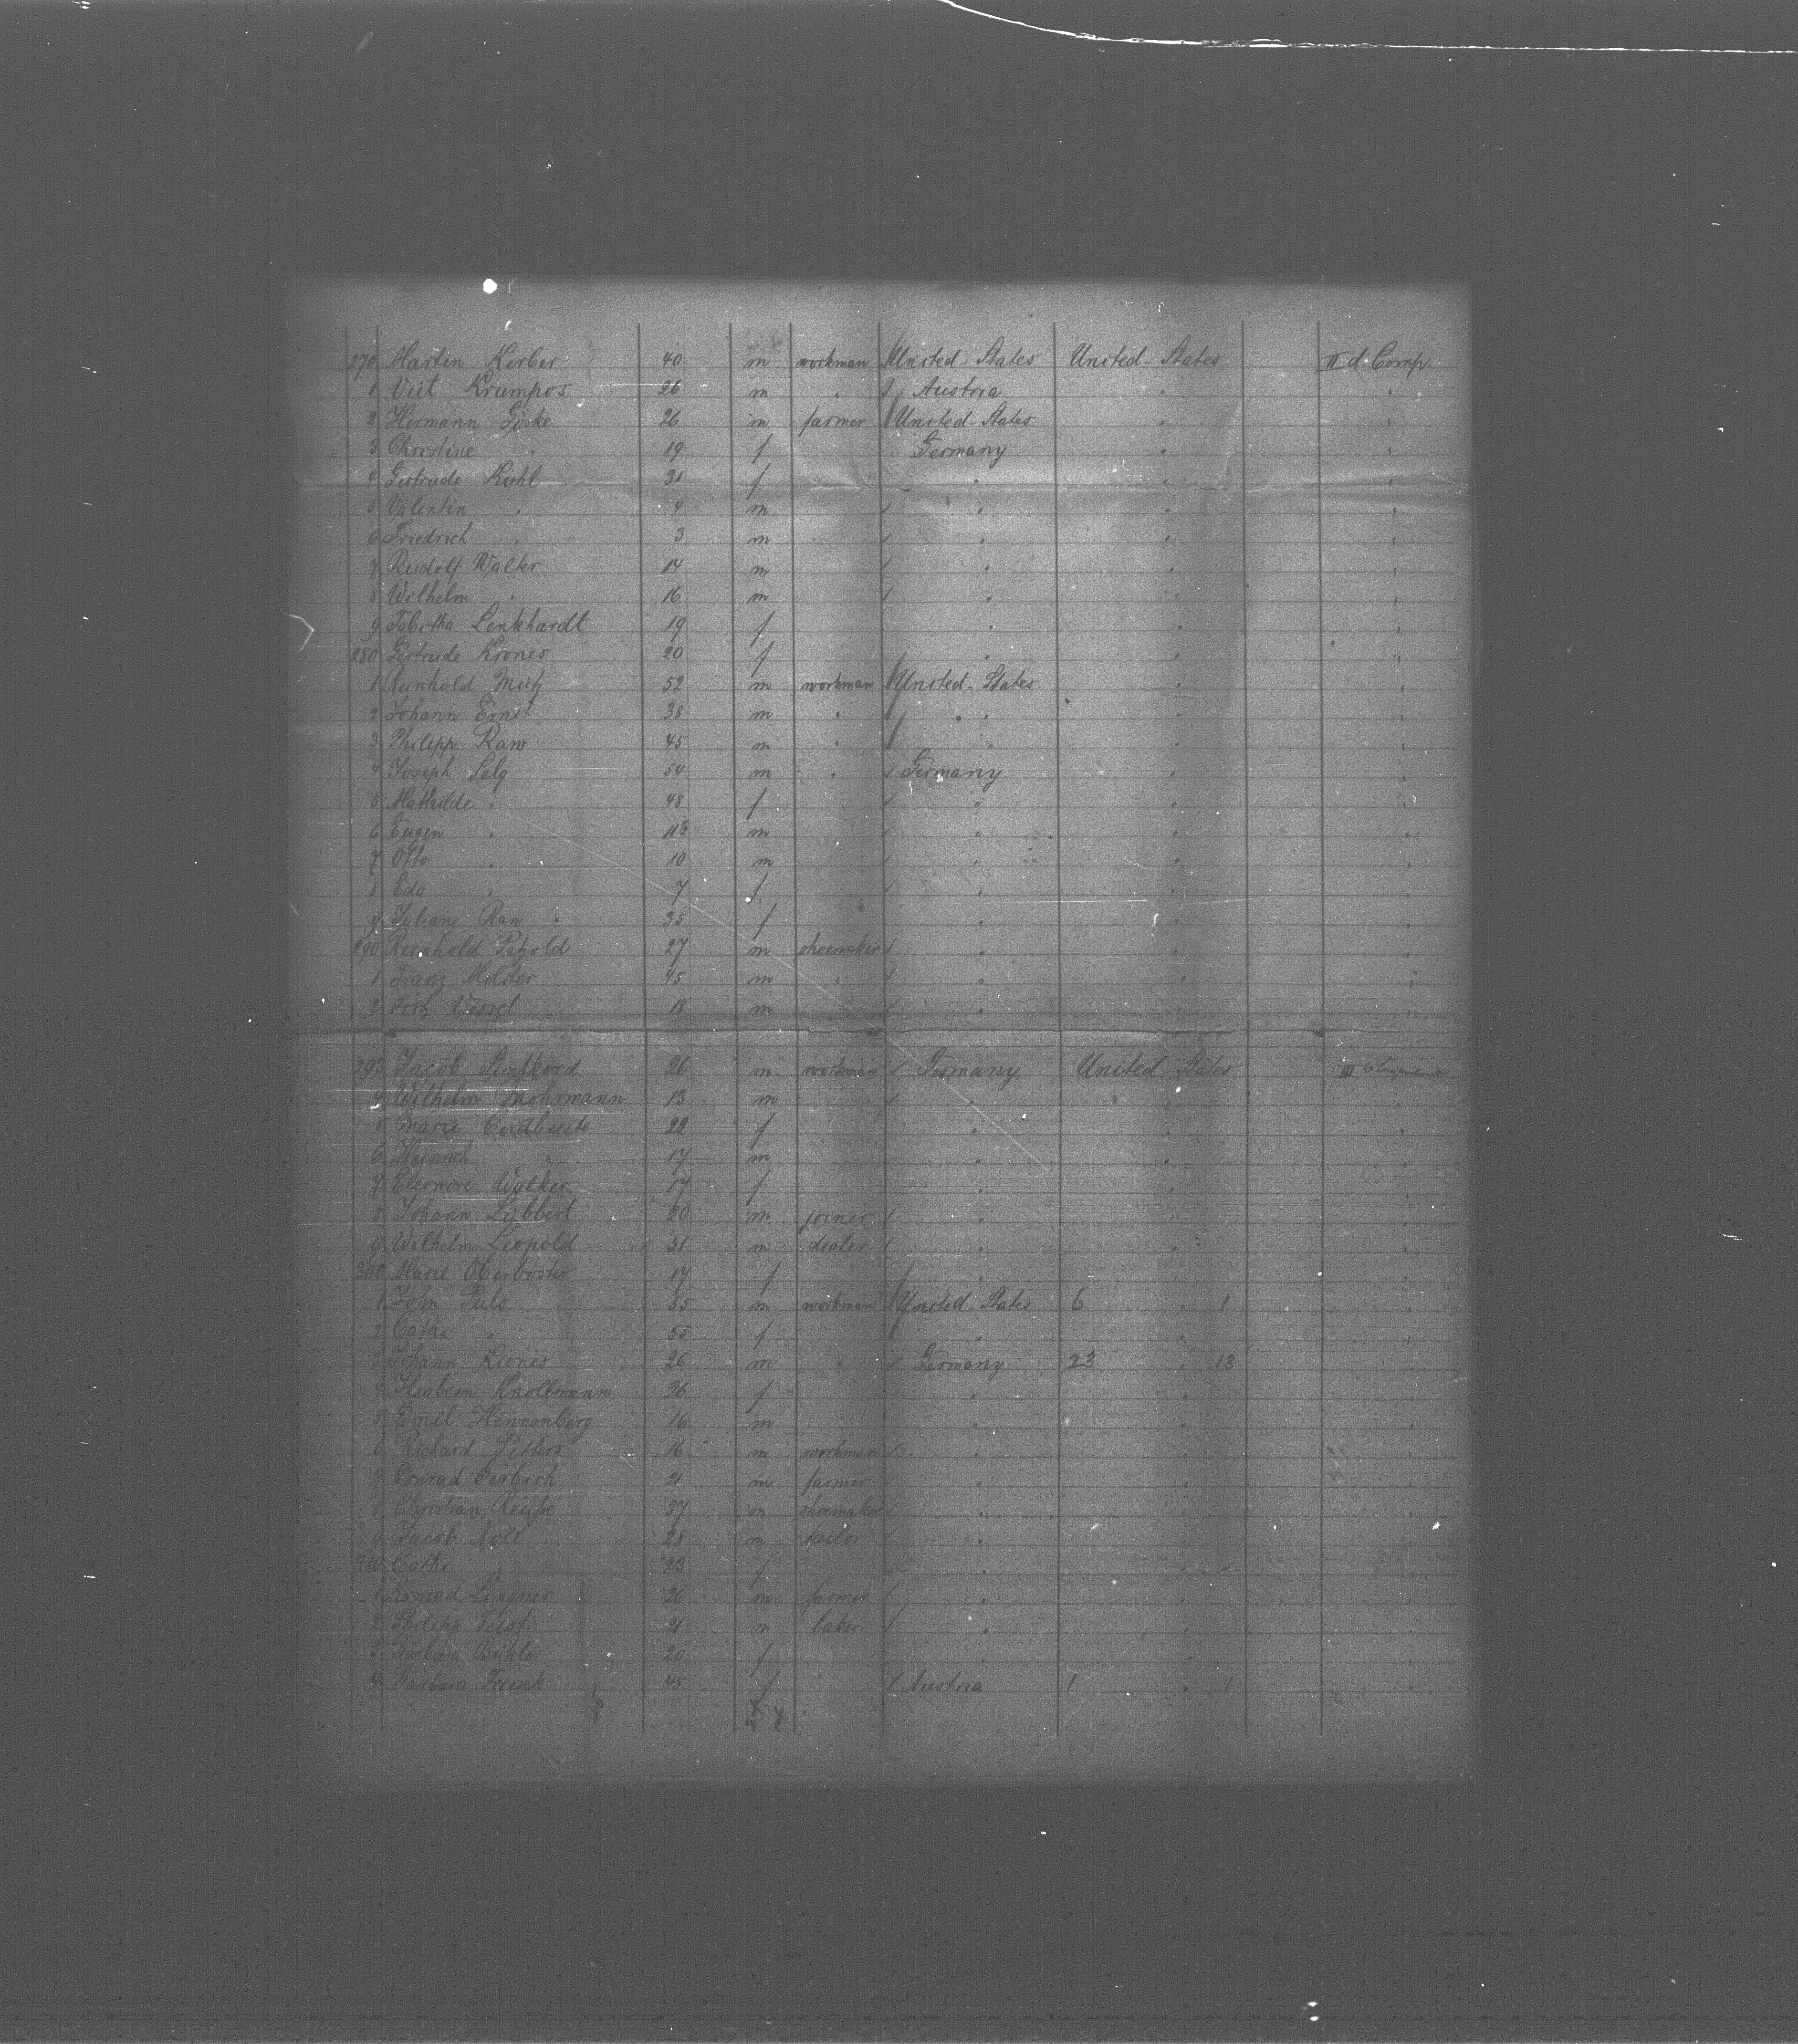 270 Martin Kerber 40 m workman United-States United-States II d. Comp.
1 Veit Krumpos 26 m " Austria " "
2 Hermann Göske 26 m farmer United-States " "
3 Christine " 19 f Germany " "
4 Gertrude Kuhl 31 f " " "
5 Valentin " 4 m " " "
6 Friedrich " 3 m " " "
7 Rudolf Walter 14 m " " "
8 Wilhelm " 16 m " " "
9 Tabitha Lenkhardt 19 f " " "
280 Gertrude Krones 20 f " " "
1 Reinhold 52 m workman United-States " "
2 Johann Ernst 38 m " " " "
3 Philipp Raw 45 m " " " "
4 Joseph Salg 54 m " Germany " "
5 Mathilde " 48 f " " "
6 Eugen " 11 m " " "
7 Otto " 10 m " " "
8 Eda " 7 f " " "
9 Juliane Raw 35 f " " "
290 Reinhold Petzold 27 m shoemaker " " "
1 Franz 45 m " " " "
2 Fritz Wessel 18 m " " "
293 Jacob 26 m workman Germany United States III
4 Wilhelm Mohrmann 13 m " " "
5 Marie 22 f " " "
6 Heinrich " 17 m " " "
7 Eleonore Walker 17 f " " "
8 Johann Lübbert 20 m joiner " " "
9 Wilhelm Leopold 31 m dealer " " "
300 Marie 17 f " " "
1 John Puls 55 m workman United-States 6 " 1 "
2 Cathe " 55 f " " "
3 Johann Krones 26 m " Germany 23 " 13 "
4 Knollmann 26 f " " "
5 Emil Hennenberg 16 m " " "
6 Richard Petters 16 m workman " " "
7 Conrad Gerbach 21 m farmer " " "
8 Christian 37 m shoemaker " " "
9 Jacob Noll 28 m tailor " " "
310 Cathe " 23 f " " "
1 Konrad Lengner 26 m farmer " " "
2 Philipp Feist 21 m baker " " "
3 Barbara Bühler 20 f " " "
4 Barbara 45 f Austria 1 " 1 "